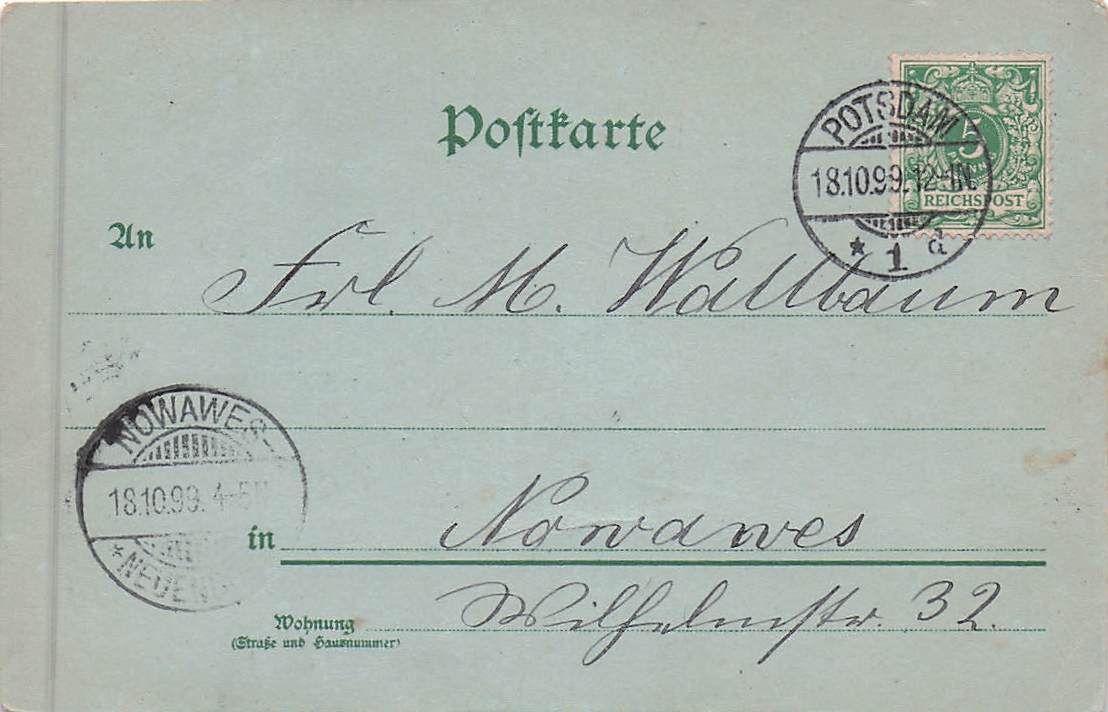 Postkarte
POTSDAM
18.10.99.12-1N.
* 1 d
5
REICHSPOST
An
Frl. M. Wallbaum
NOWAWES-
18.10.99. 4-5N
in Nowawes
Wohnung Wilhelmstr. 32.
(Straße und Hausnummer)